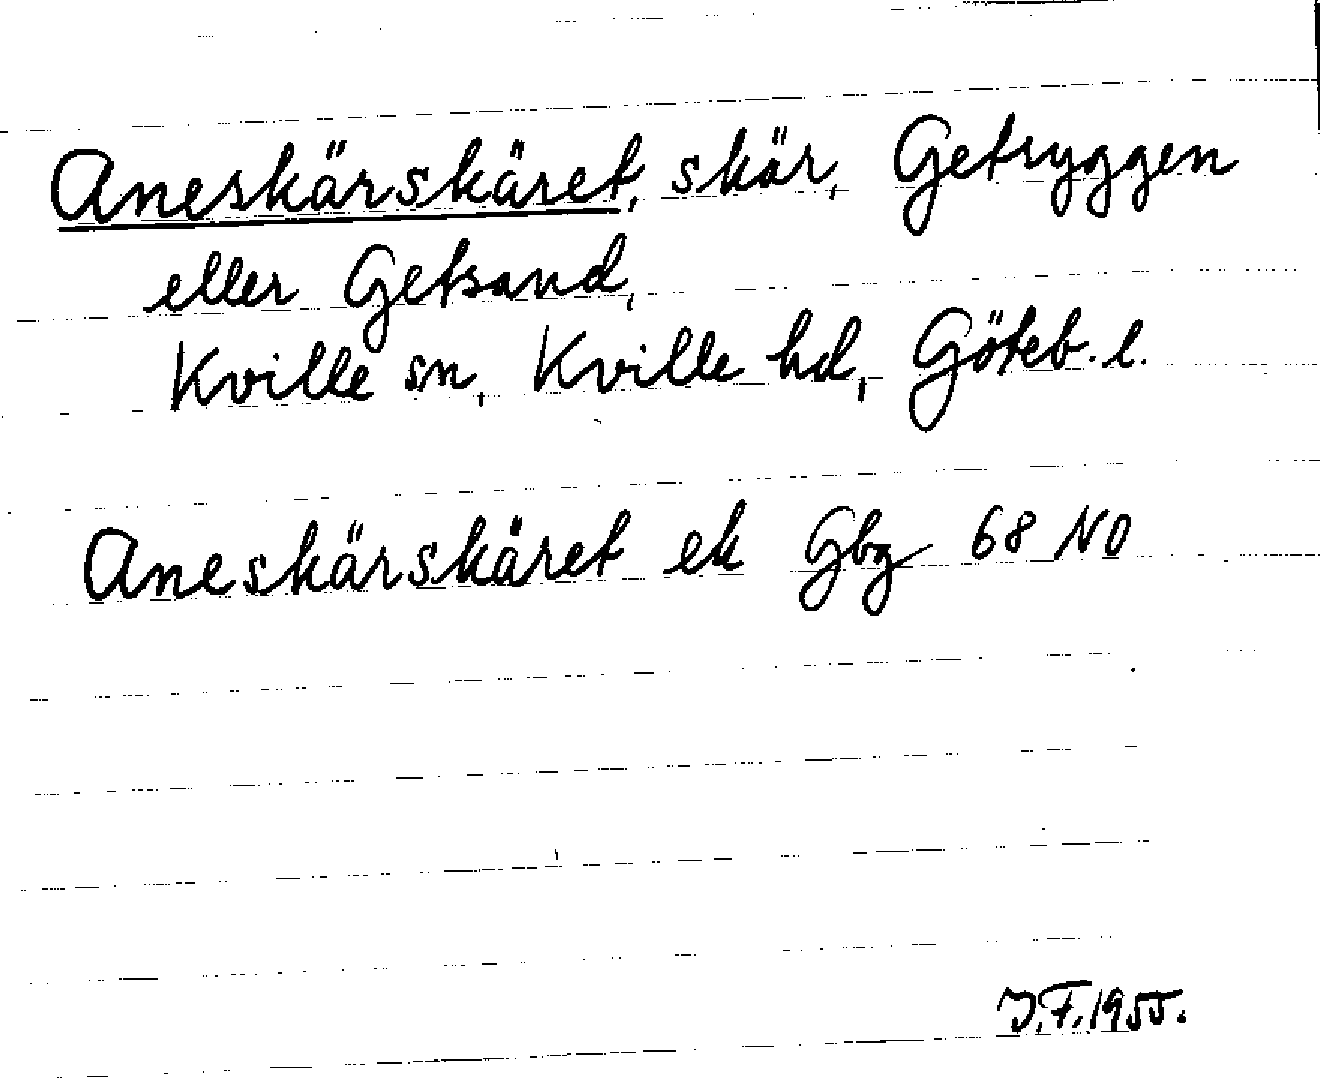 Aneskärskäret, skär, Getryggen
eller Getsand,
Kville sn, Kville hd, Göteb. l.
Aneskärskäret ek Gbg 68 NO
J.F. 1955.